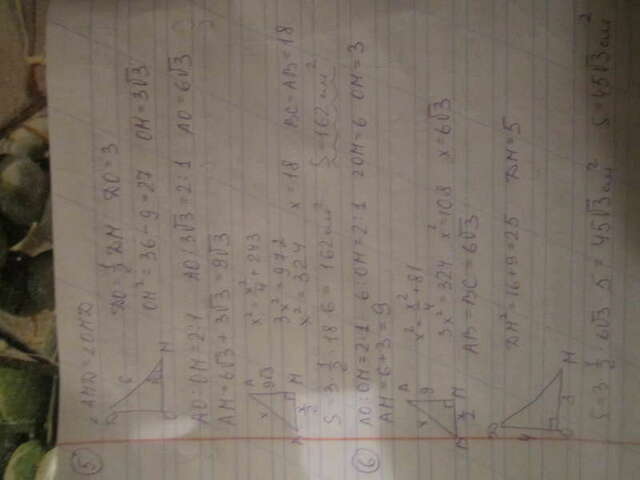 ⑤ ∠AMD = ∠OMD
DO = 1/2 DM   DO = 3
OM² = 36 - 9 = 27   OM = 3√3
AO : OM = 2:1   AO : 3√3 = 2:1   AO = 6√3
AM = 6√3 + 3√3 = 9√3
x² = x²/4 + 243
3x² = 972
x² = 324   x = 18   BC = AB = 18
S = 3·1/2·18·6 = 162 см²   S = 162 см²
⑥ AO : OM = 2:1   6 : OM = 2:1   2OM = 6   OM = 3
AM = 6 + 3 = 9
x² = x²/4 + 81
3x² = 324   x² = 108   x = 6√3
AB = BC = 6√3
DM² = 16 + 9 = 25   DM = 5
S = 3·1/2·6√3·5 = 45√3 см²   S = 45√3 см²